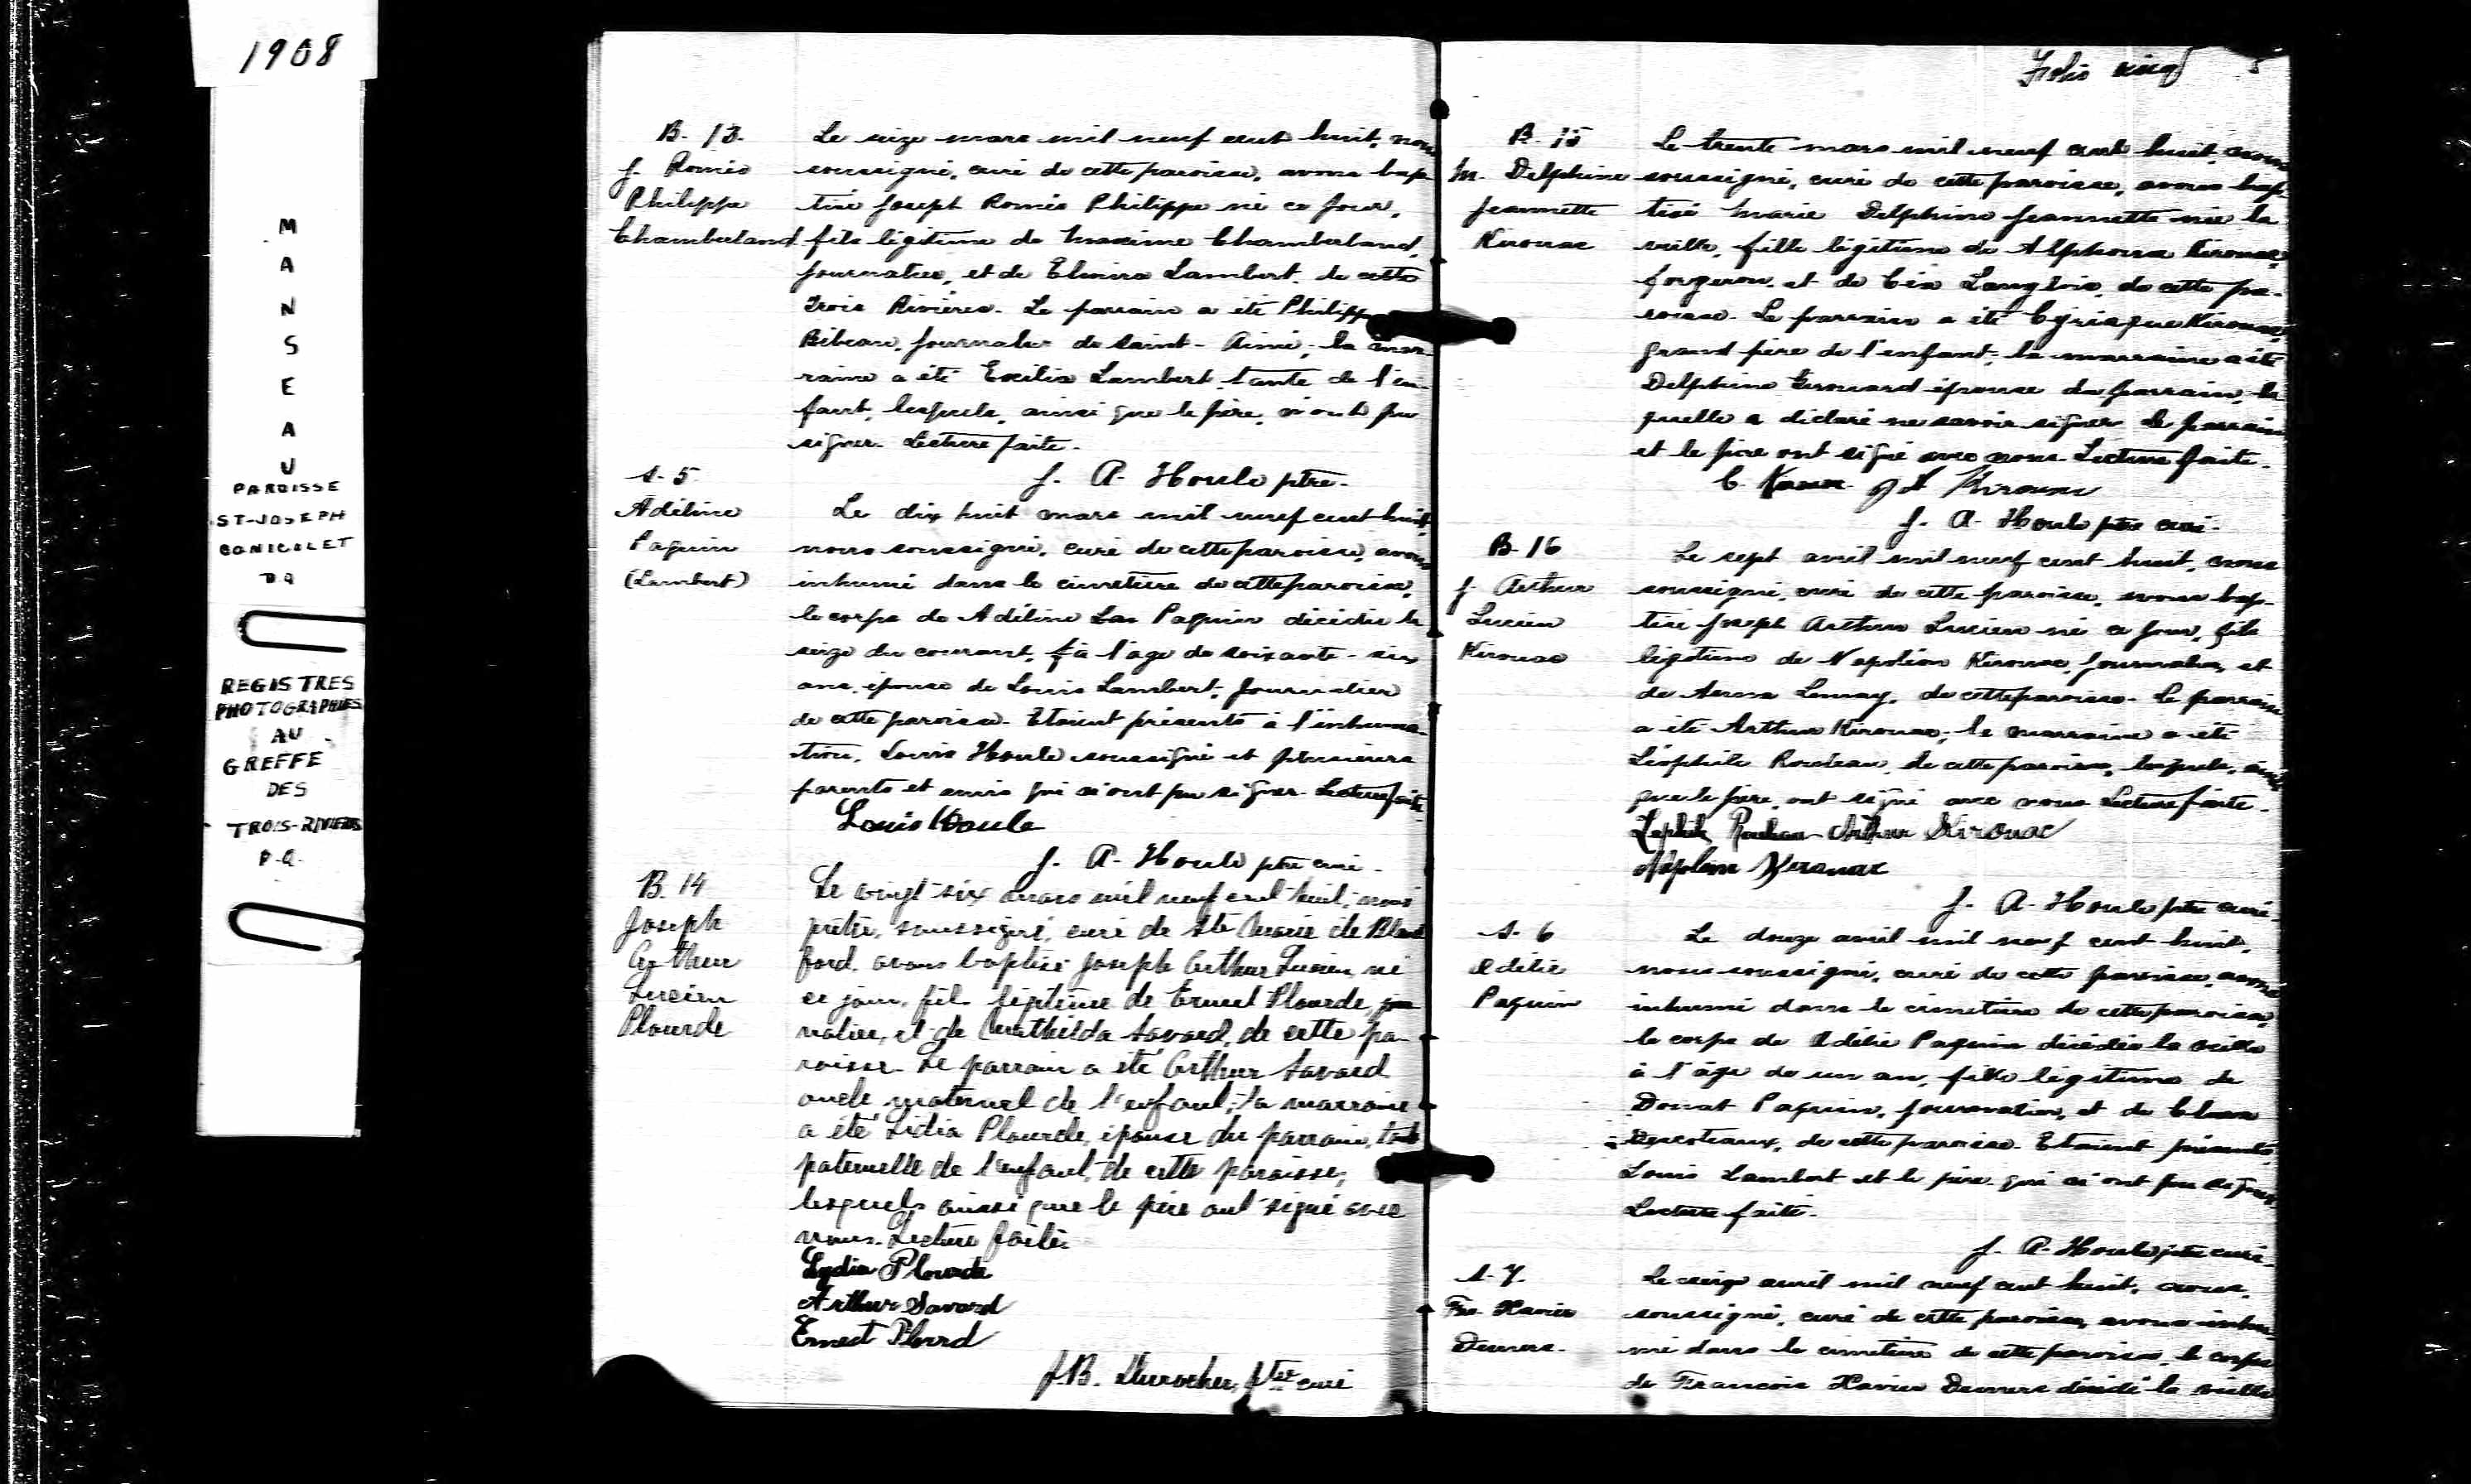 1908
M
A
N
S
E
A
U
PAROISSE
ST-JOSEPH
CO NICOLET
P Q
REGISTRES
PHOTOGRAPHIES
AU
GREFFE
DES
TROIS-RIVIERES
P.Q.
B. 13.
J. Roméo
Philippe
Chamberland
Le seize mars mil neuf cent huit, nous
soussigné, curé de cette paroisse, avons bap-
tisé Joseph Roméo Philippe né ce jour,
fils légitime de Maxime Chamberland,
journalier, et de Elmira Lambert, de cette
Trois Rivières. Le parrain a été Philippe
Bibeau, journalier de Saint-Aimé; la mar-
raine a été Exilia Lambert tante de l'en-
fant, lesquels, ainsi que le père, n'ont pu
signer. Lecture faite.
J. A. Houle ptre.
S. 5
Adéline
Paquin
(Lambert)
Le dix huit mars mil neuf cent huit,
nous soussigné, curé de cette paroisse, avons
inhumé dans le cimetière de cette paroisse,
le corps de Adéline Paquin décédée le
seize du courant, à l'age de soixante-six
ans, épouse de Louis Lambert, journalier
de cette paroisse. Etaient présents à l'inhuma-
tion, Louis Houle soussigné et plusieurs
parents et amis qui n'ont pu signer. Lecture faite.
Louis Houle
J. A. Houle ptre curé.
B. 14
Joseph
Arthur
Lucien
Plourde
Le vingt-six mars mil neuf cent huit, nous
prêtre, soussigné, curé de Ste Marie de Bland
ford, avons baptisé Joseph Arthur Lucien né
ce jour, fils légitime de Ernest Plourde, jour
nalier, et de Mathilda Savard, de cette pa-
roisse. Le parrain a été Arthur Savard
oncle maternel de l'enfant; la marraine
a été Lidia Plourde, épouse du parrain, tante
paternelle de l'enfant, de cette paroisse,
lesquels ainsi que le père ont signé avec
nous. Lecture faite.
Lydia Plourde
Arthur Savard
Ernest Plourd
J.B. Durocher, Ptre curé
Folio cinq 5
B. 15
M. Delphine
Jeannette
Kirouac
Le trente mars mil neuf cent huit, nous
soussigné, curé de cette paroisse, avons bap-
tisé Marie Delphine Jeannette née la
veille, fille légitime de Alphonse Kirouac,
forgeron, et de Langlois, de cette pa-
roisse. Le parrain a été Cyriaque Kirouac,
grand père de l'enfant; la marraine a été
Delphine épouse du parrain, la
quelle a déclaré ne savoir signer. Le parrain
et le père ont signé avec nous. Lecture faite.
C. Kirouac
J. A. Houle ptre curé.
B. 16
J. Arthur
Lucien
Kirouac
Le sept avril mil neuf cent huit, nous
soussigné, curé de cette paroisse, avons bap-
tisé Joseph Arthur Lucien né ce jour, fils
légitime de Napoléon Kirouac, journalier, et
de Anna Launay, de cette paroisse. Le parrain
a été Arthur Kirouac; la marraine a été
Léophile Rouleau, de cette paroisse, lesquels, ainsi
que le père, ont signé avec nous. Lecture faite.
Rouleau Arthur Kirouac
Kirouac
J. A. Houle ptre curé.
S. 6
Odélie
Paquin
Le douze avril mil neuf cent huit,
nous soussigné, curé de cette paroisse, avons
inhumé dans le cimetière de cette paroisse,
le corps de Odélie Paquin décédée la veille
à l'âge de un an, fille légitime de
Donat Paquin, journalier, et de Clara
Descoteaux, de cette paroisse. Etaient présents,
Louis Lambert et le père qui n'ont pu signer.
Lecture faite.
J. A. Houle ptre curé.
S. 7.
Frs. Xavier
Demers.
Le seize avril mil neuf cent huit, nous,
soussigné, curé de cette paroisse, avons inhu-
mé dans le cimetière de cette paroisse, le corps
de François Xavier Demers décédé la veille